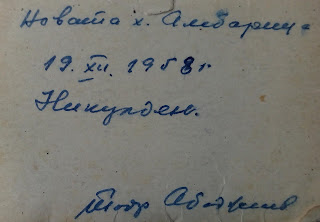 Новата х. Амбарица
19. XII. 1958 г.
Никулден.
Тодр Абаджиев